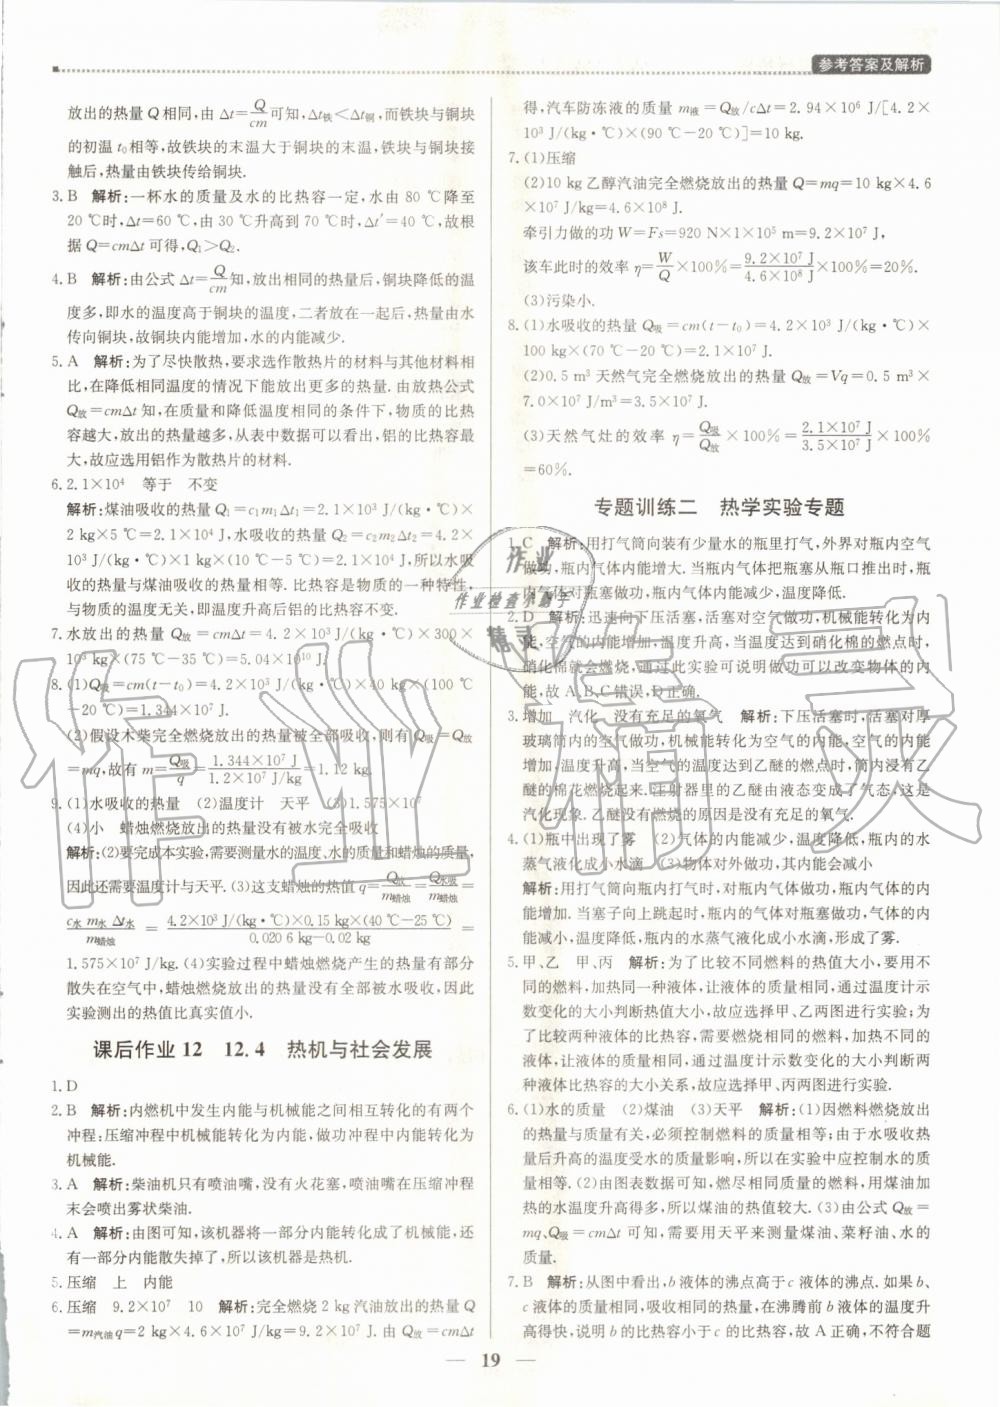 参考答案及解析
放出的热量 Q 相同,由 Δt=Q/cm 可知,Δt铁<Δt铜,而铁块与铜块
的初温 t₀相等,故铁块的末温大于铜块的末温,铁块与铜块接
触后,热量由铁块传给铜块.
3. B 解析:一杯水的质量及水的比热容一定,水由 80 ℃降至
20 ℃时,Δt=60 ℃,由 30 ℃升高到 70 ℃时,Δt′=40 ℃,故根
据 Q=cmΔt 可得,Q₁>Q₂.
4. B 解析:由公式 Δt=Q/cm知,放出相同的热量后,铜块降低的温
度多,即水的温度高于铜块的温度,二者放在一起后,热量由水
传向铜块,故铜块内能增加,水的内能减少.
5. A 解析:为了尽快散热,要求选作散热片的材料与其他材料相
比,在降低相同温度的情况下能放出更多的热量.由放热公式
Q放=cmΔt 知,在质量和降低温度相同的条件下,物质的比热
容越大,放出的热量越多,从表中数据可以看出,铝的比热容最
大,故应选用铝作为散热片的材料.
6. 2.1×10⁴ 等于 不变
解析:煤油吸收的热量 Q₁=c₁m₁Δt₁=2.1×10³ J/(kg·℃)×
2 kg×5 ℃=2.1×10⁴ J,水吸收的热量 Q₂=c₂m₂Δt₂=4.2×
10³ J/(kg·℃)×1 kg×(10 ℃-5 ℃)=2.1×10⁴ J,所以水吸
收的热量与煤油吸收的热量相等.比热容是物质的一种特性,
与物质的温度无关,即温度升高后铝的比热容不变.
7. 水放出的热量 Q放=cmΔt=4.2×10³ J/(kg·℃)×300×
10³ kg×(75 ℃-35 ℃)=5.04×10¹⁰ J.
8. (1)Q吸=cm(t-t₀)=4.2×10³ J/(kg·℃)×40 kg×(100 ℃
-20 ℃)=1.344×10⁷ J.
(2)假设木柴完全燃烧放出的热量被全部吸收,则有 Q吸=Q放
=mq,故有 m=Q吸/q=1.344×10⁷ J/1.2×10⁷ J/kg=1.12 kg.
9. (1)水吸收的热量 (2)温度计 天平 (3)1.575×10⁷
(4)小 蜡烛燃烧放出的热量没有被水完全吸收
解析:(2)要完成本实验,需要测量水的温度、水的质量和蜡烛的质量,
因此还需要温度计与天平.(3)这支蜡烛的热值 q=Q放/m蜡烛=Q水吸/m蜡烛=
c水 m水 Δt水/m蜡烛=4.2×10³ J/(kg·℃)×0.15 kg×(40 ℃-25 ℃)/0.020 6 kg-0.02 kg=
1.575×10⁷ J/kg.(4)实验过程中蜡烛燃烧产生的热量有部分
散失在空气中,蜡烛燃烧放出的热量没有全部被水吸收,因此
实验测出的热值比真实值小.
课后作业 12 12.4 热机与社会发展
1. D
2. B 解析:内燃机中发生内能与机械能之间相互转化的有两个
冲程:压缩冲程中机械能转化为内能,做功冲程中内能转化为
机械能.
3. A 解析:柴油机只有喷油嘴,没有火花塞,喷油嘴在压缩冲程
末会喷出雾状柴油.
4. A 解析:由图可知,该机器将一部分内能转化成了机械能,还
有一部分内能散失掉了,所以该机器是热机.
5. 压缩 上 内能
6. 压缩 9.2×10⁷ 10 解析:完全燃烧 2 kg 汽油放出的热量 Q
=m汽油q=2 kg×4.6×10⁷ J/kg=9.2×10⁷ J.由 Q放=cmΔt
得,汽车防冻液的质量 m液=Q放/cΔt=2.94×10⁶ J/[4.2×
10³ J/(kg·℃)×(90 ℃-20 ℃)]=10 kg.
7. (1)压缩
(2)10 kg 乙醇汽油完全燃烧放出的热量 Q=mq=10 kg×4.6
×10⁷ J/kg=4.6×10⁸ J.
牵引力做的功 W=Fs=920 N×1×10⁵ m=9.2×10⁷ J,
该车此时的效率 η=W/Q×100%=9.2×10⁷ J/4.6×10⁸ J×100%=20%.
(3)污染小.
8. (1)水吸收的热量 Q吸=cm(t-t₀)=4.2×10³ J/(kg·℃)×
100 kg×(70 ℃-20 ℃)=2.1×10⁷ J.
(2)0.5 m³ 天然气完全燃烧放出的热量 Q放=Vq=0.5 m³×
7.0×10⁷ J/m³=3.5×10⁷ J.
(3)天然气灶的效率 η=Q吸/Q放×100%=2.1×10⁷ J/3.5×10⁷ J×100%
=60%.
专题训练二 热学实验专题
1. C 解析:用打气筒向装有少量水的瓶里打气,外界对瓶内空气
做功,瓶内气体内能增大.当瓶内气体把瓶塞从瓶口推出时,瓶
内气体对瓶塞做功,瓶内气体内能减少,温度降低.
2. D 解析:迅速向下压活塞,活塞对空气做功,机械能转化为内
能,空气的内能增加,温度升高,当温度达到硝化棉的燃点时,
硝化棉就会燃烧,通过此实验可说明做功可以改变物体的内
能,故 A、B、C 错误,D 正确.
3. 增加 汽化 没有充足的氧气 解析:下压活塞时,活塞对厚
玻璃筒内的空气做功,机械能转化为空气的内能,空气的内能
增加,温度升高,当空气的温度达到乙醚的燃点时,筒内浸有乙
醚的棉花燃烧起来.注射器里的乙醚由液态变成了气态,这是
汽化现象.乙醚没有燃烧的原因是没有充足的氧气.
4. (1)瓶中出现了雾 (2)气体的内能减少,温度降低,瓶内的水
蒸气液化成小水滴 (3)物体对外做功,其内能会减小
解析:用打气筒向瓶内打气时,对瓶内气体做功,瓶内气体的内
能增加.当塞子向上跳起时,瓶内的气体对瓶塞做功,气体的内
能减小,温度降低,瓶内的水蒸气液化成小水滴,形成了雾.
5. 甲、乙 甲、丙 解析:为了比较不同燃料的热值大小,要用不
同的燃料,加热同一种液体,让液体的质量相同,通过温度计示
数变化的大小判断热值大小,故应选择甲、乙两图进行实验;
为了比较两种液体的比热容,需要燃烧相同的燃料,加热不同的
液体,让液体的质量相同,通过温度计示数变化的大小判断两
种液体比热容的大小关系,故应选择甲、丙两图进行实验.
6. (1)水的质量 (2)煤油 (3)天平 解析:(1)因燃料燃烧放出
的热量与质量有关,必须控制燃料的质量相等;由于水吸收热
量后升高的温度受水的质量影响,所以在实验中应控制水的质
量相等.(2)由图表数据可知,燃尽相同质量的燃料,用煤油加
热的水温度升高得多,所以煤油的热值较大.(3)由公式 Q放=
mq、Q吸=cmΔt 可知,需要用天平来测量煤油、菜籽油、水的
质量.
7. B 解析:从图中看出,b 液体的沸点高于 c 液体的沸点.如果 b、
c 液体的质量相同,吸收相同的热量,在沸腾前 b 液体的温度升
高得快,说明 b 的比热容小于 c 的比热容,故 A 正确,不符合题
— 19 —
作业
作业检查小助手
精灵
作业精灵